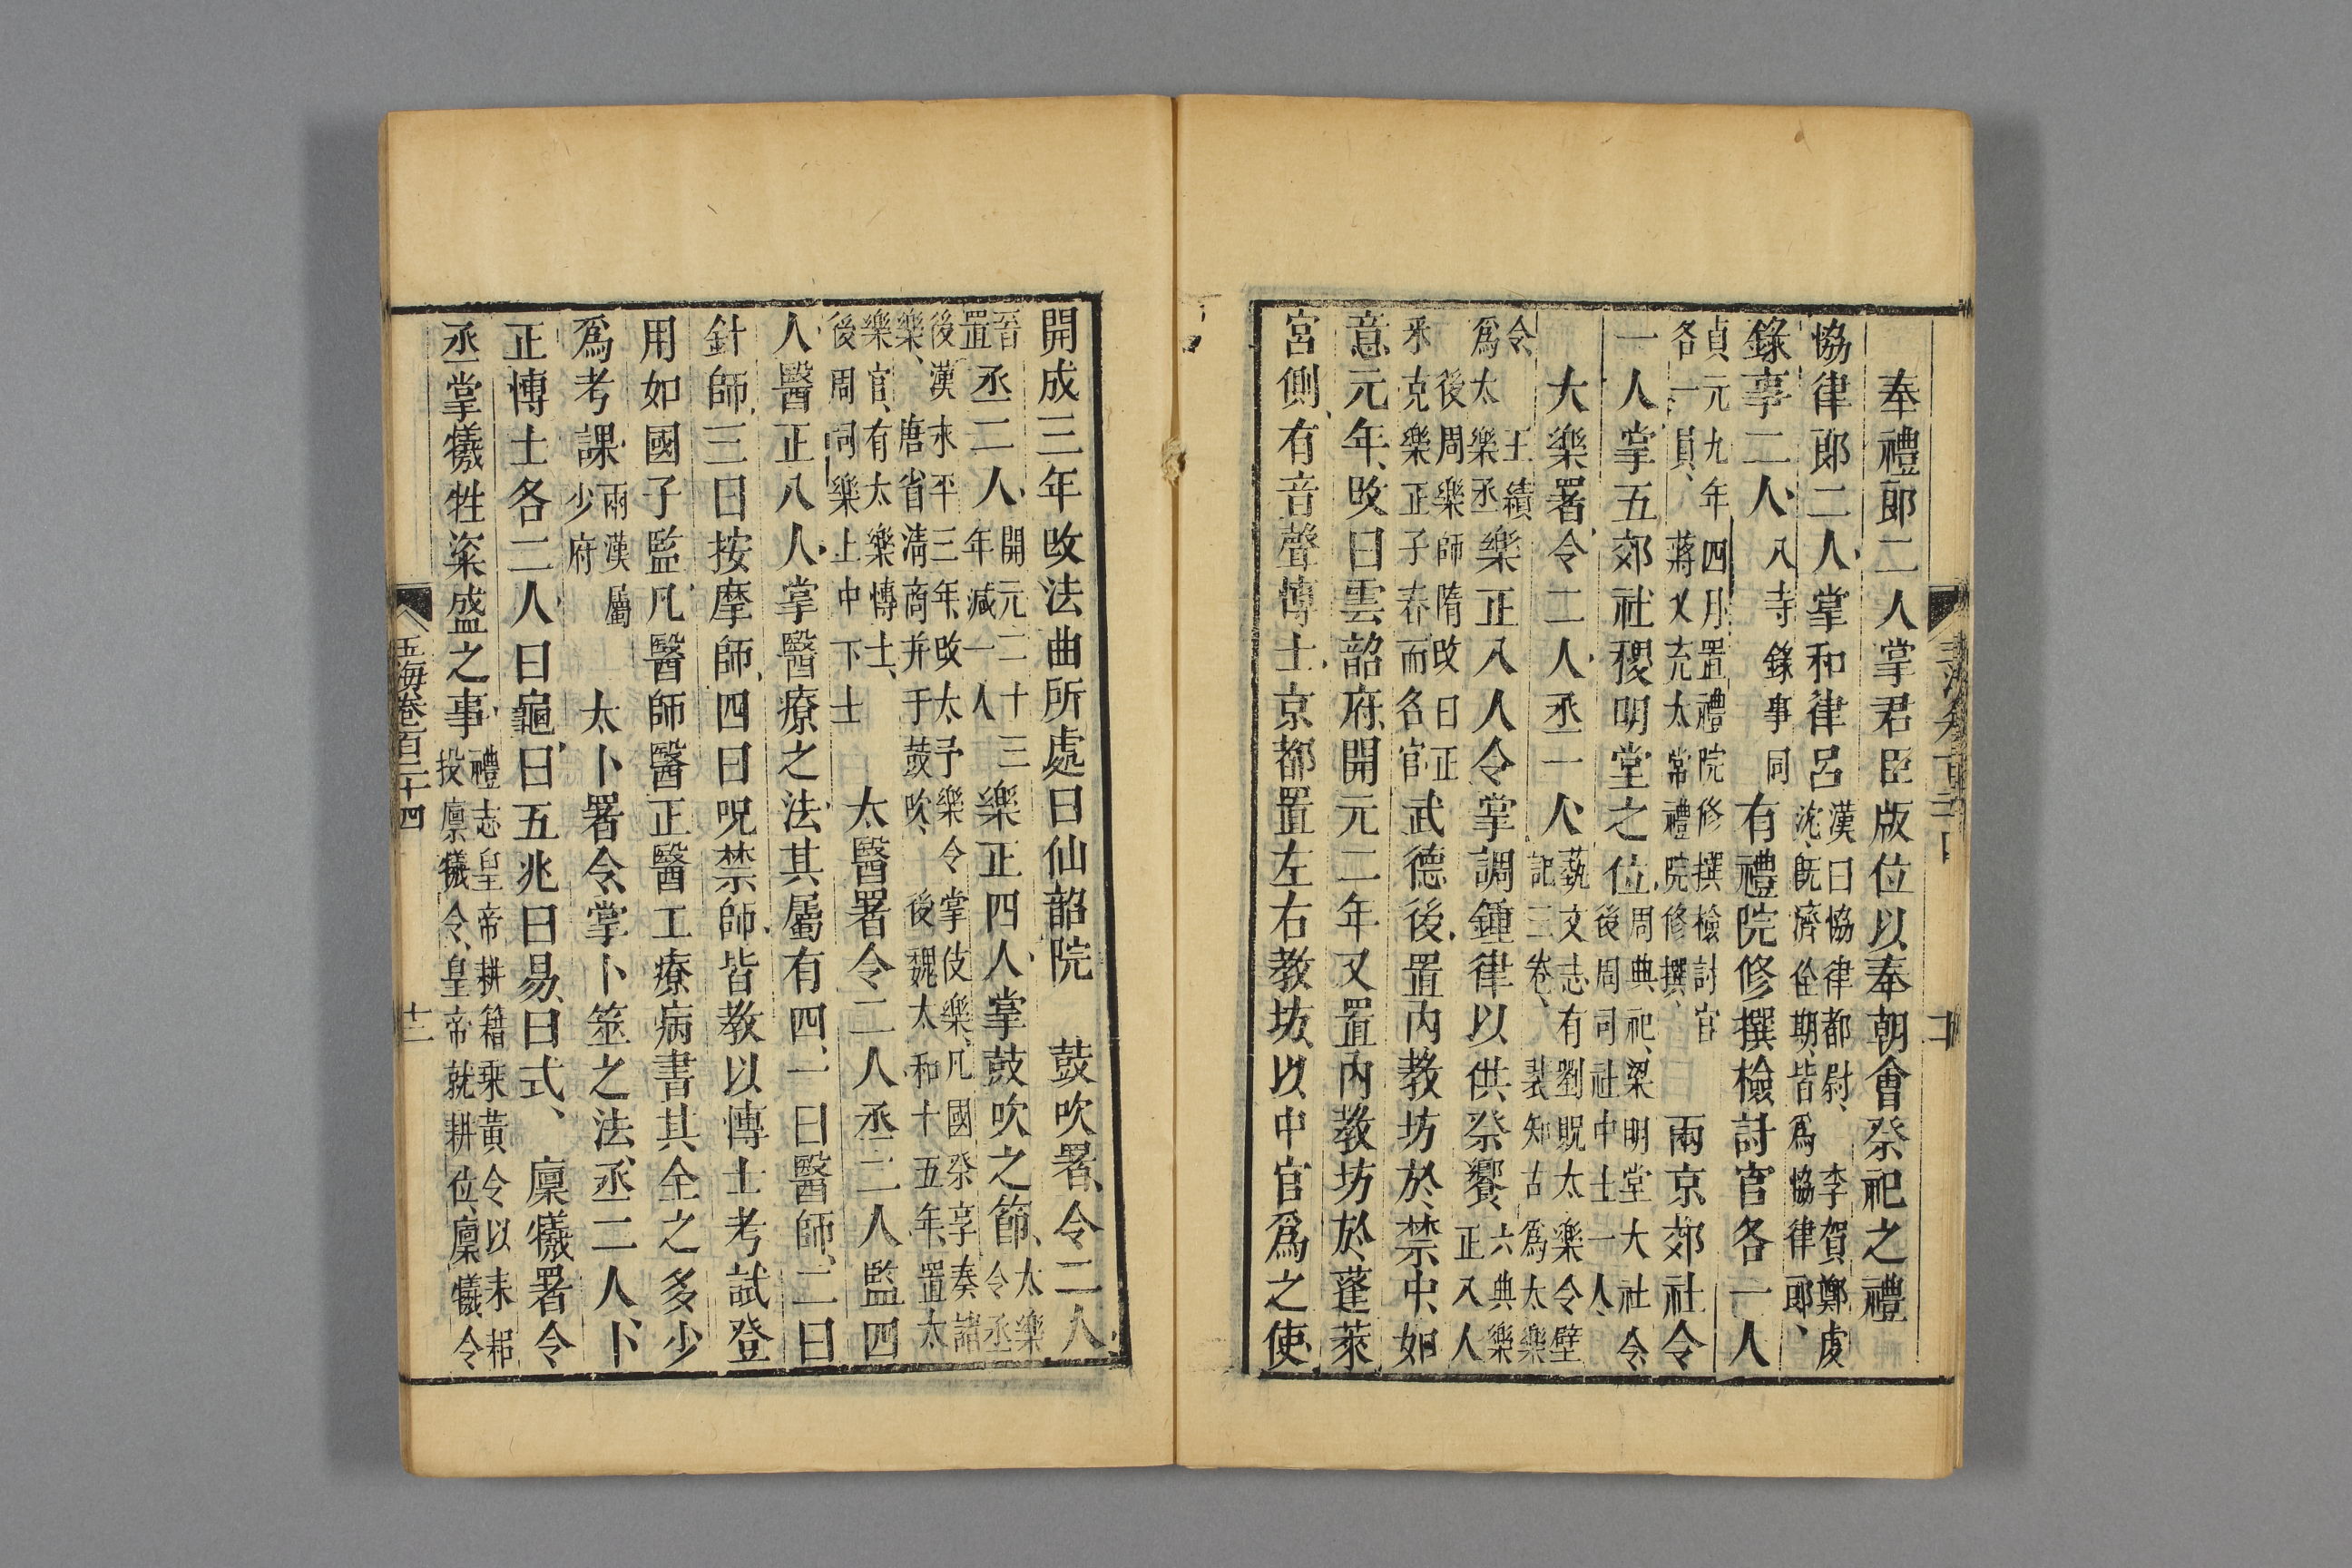 奉禮郎二人掌君臣版位以奉朝會祭祀之禮
協律郎二人掌和律呂漢曰協律都尉李賀鄭虔沈旣濟佺期皆爲協律郎
錄事二人八寺錄事同有禮院修撰檢討官各一人
貞元九年四月置禮院修撰檢討官各一員蔣乂充太常禮院修撰兩京郊社令
一人掌五郊社稷明堂之位周典祀梁明堂大社令後周司社中士一人
大樂署令二人丞一人藝文志有劉貺太樂令壁記三卷裴知古爲太樂
令王績爲太樂丞樂正八人令掌調鍾律以供祭饗六典樂正八人
後周樂師隋改曰正釆克樂正子春而名官武德後置內教坊於禁中如
意元年改曰雲韶府開元二年又置內教坊於蓬萊
宮側有音聲博士京都置左右教坊以中官爲之使
開成三年改法曲所處曰仙韶院　鼓吹署令二人
晉置丞二人開元二十三年減一人樂正四人掌鼓吹之節太樂令丞
後漢末平三年改太予樂令掌伎樂凡國祭享奏諸樂唐省淸商并于鼓吹後魏太和十五年置太
樂官有太樂博士後周司樂上中下士太醫署令二人丞二人監四
人醫正八人掌醫療之法其屬有四一曰醫師二曰
針師三曰按摩師四曰呪禁師皆教以博士考試登
用如國子監凡醫師醫正醫工療病書其全之多少
爲考課兩漢屬少府太卜署令掌卜筮之法丞二人卜
正博士各二人曰龜曰五兆曰易曰式　廩犧署令
丞掌犧牲粢盛之事禮志皇帝耕籍乘黃令以耒耜授廩犧令皇帝就耕位廩犧令
玉海卷百二十四
十二